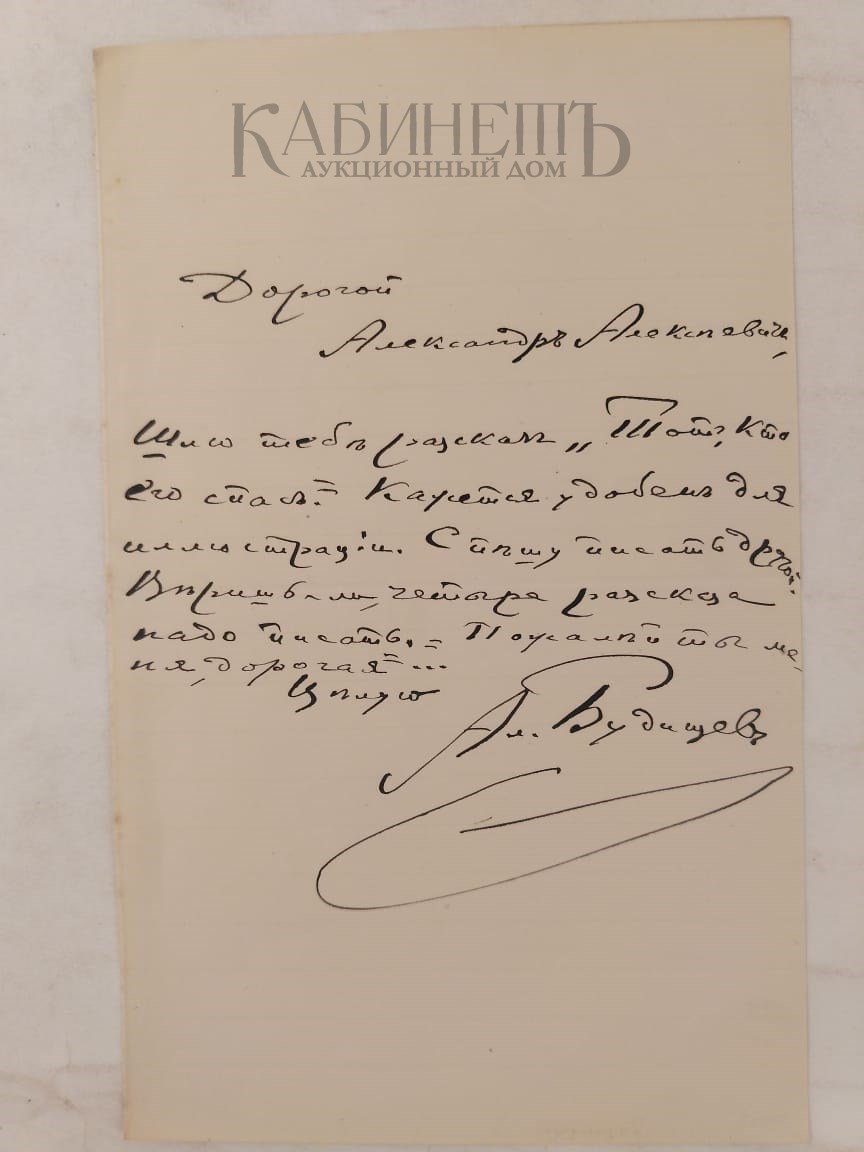 КАБИНЕТЪ
АУКЦИОННЫЙ ДОМ
Дорогой
Александръ Алексѣевичъ,
Шлю тебѣ разсказъ „Тотъ, кто
его спасъ". Кажется удобенъ для
иллюстраціи. Спѣшу писать другой.
Вѣришь-ли, четыре разсказа
надо писать. – Пожалѣй ты ме-
ня, дорогая"...
Цѣлую
Ал. Будищевъ